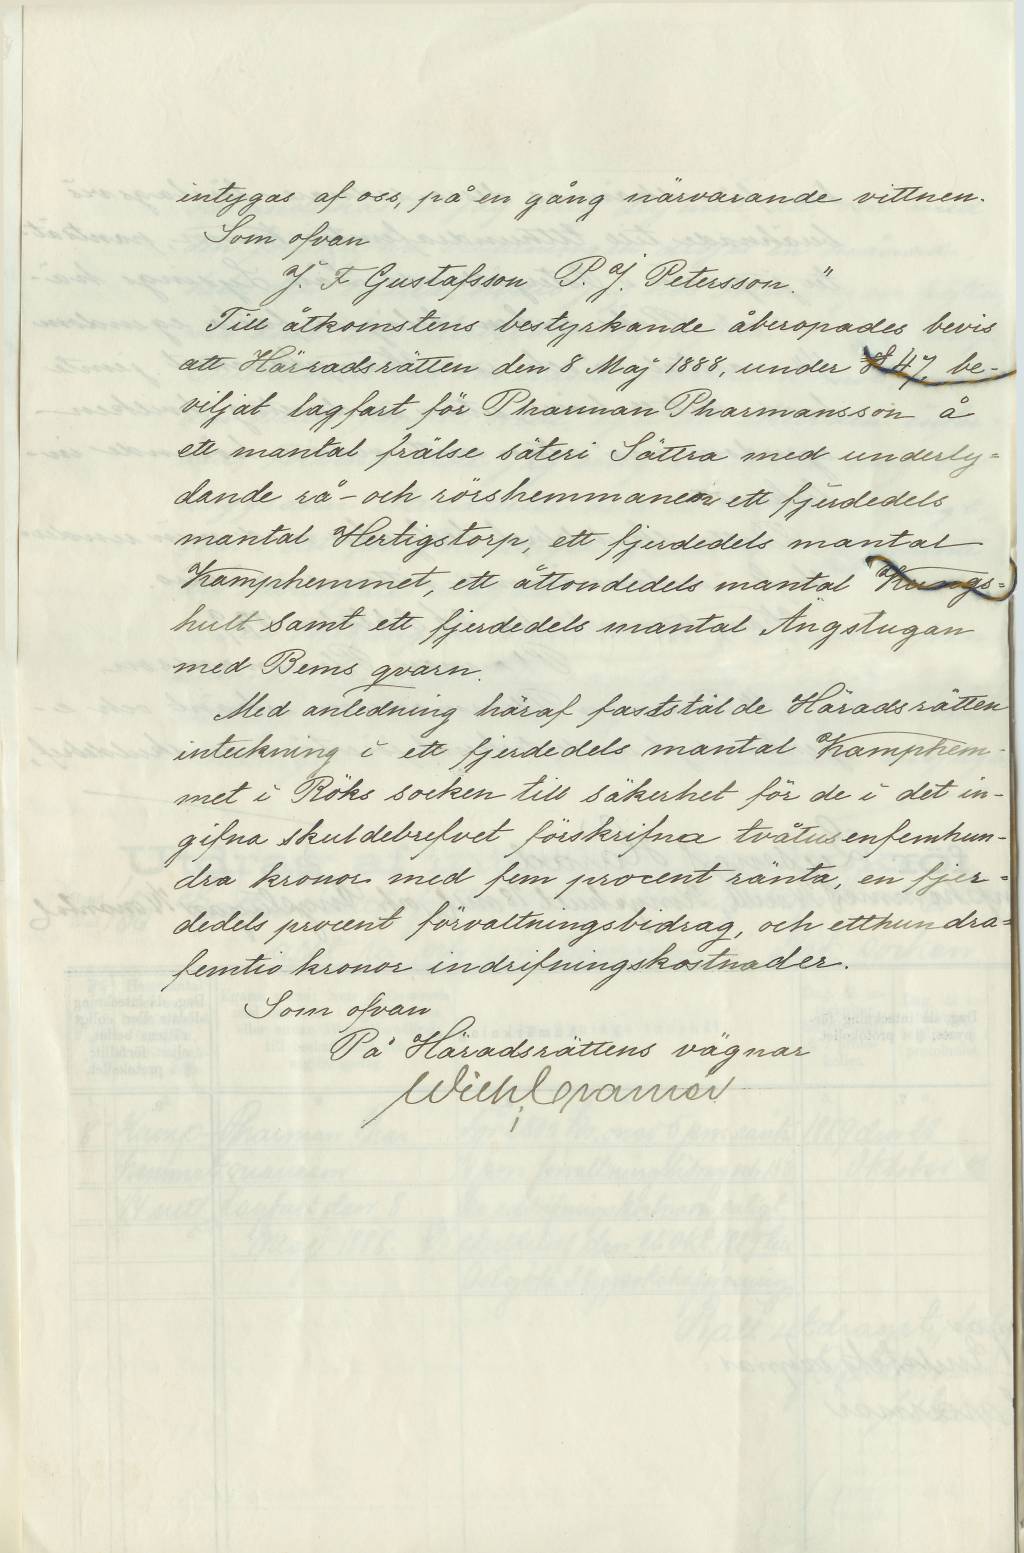 intygas af oss, på en gång närvarande vittnen.
Som ofvan
J. F Gustafsson P. J. Petersson."
Till åtkomstens bestyrkande åberopades bevis
att Häradsrätten den 8 Maj 1888, under § 47, be-
viljat lagfart för Pharman Pharmansson å
ett mantal frälse säteri Sättra med underly=
dande rå- och rörshemmanen ett fjerdedels
mantal Hertigstorp, ett fjerdedels mantal
Kamphemmet, ett åttondedels mantal Kungs=
hult samt ett fjerdedels mantal Ängstugan
med Bems qvarn.
Med anledning häraf faststälde Häradsrätten
inteckning i ett fjerdedels mantal Kamphem-
met i Röks socken till säkerhet för de i det in-
gifna skuldebrefvet förskrifna tvåtusenfemhun-
dra kronor med fem procent ränta, en fjer=
dedels procent förvaltningsbidrag, och etthundra=
femtio kronor indrifningskostnader.
Som ofvan
På Häradsrättens vägnar